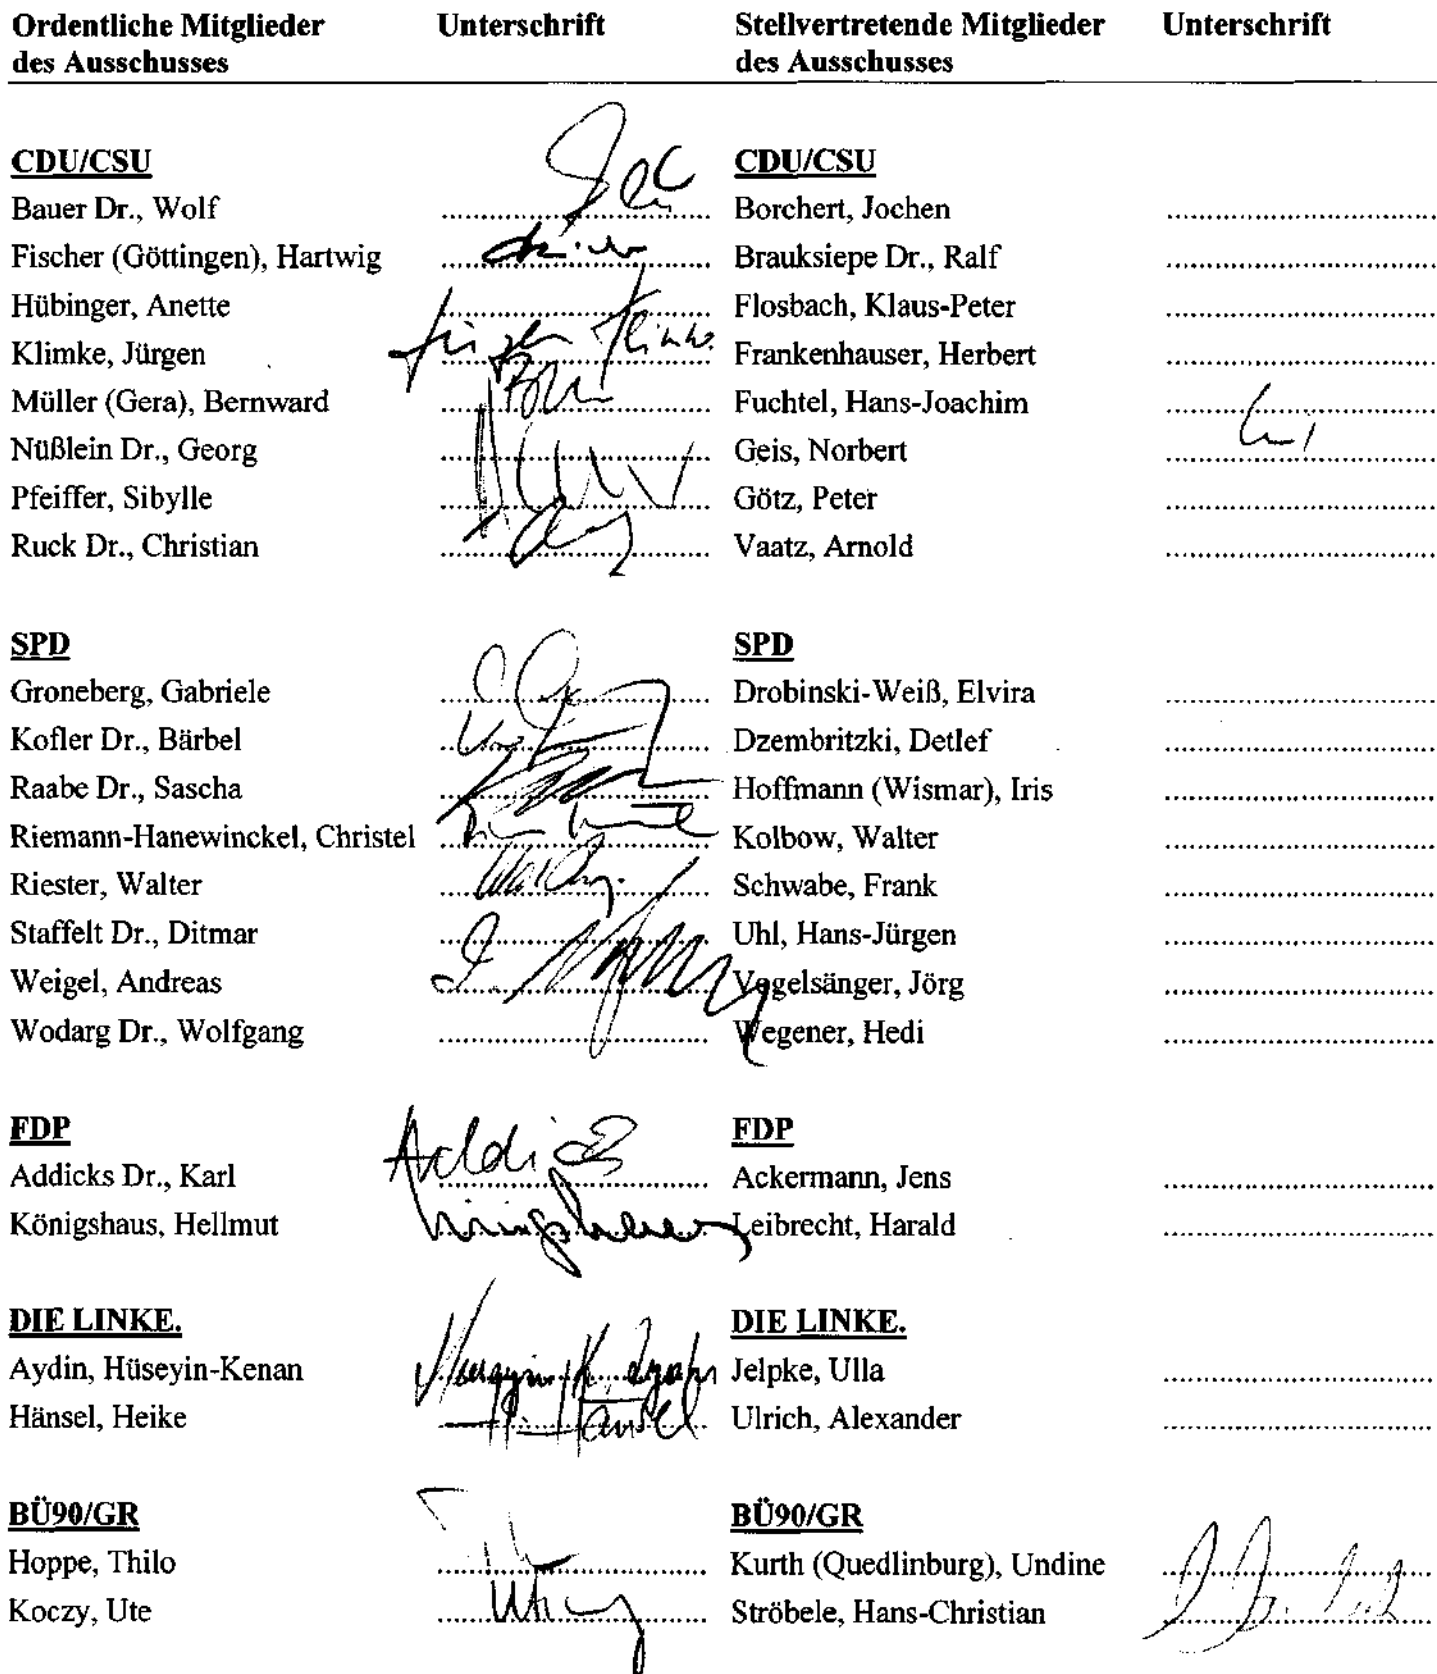 Ordentliche Mitglieder Unterschrift Stellvertretende Mitglieder Unterschrift
des Ausschusses des Ausschusses
CDU/CSU CDU/CSU
Bauer Dr., Wolf Borchert, Jochen
Fischer (Göttingen), Hartwig Brauksiepe Dr., Ralf
Hübinger, Anette Flosbach, Klaus-Peter
Klimke, Jürgen Jürgen Klimke Frankenhauser, Herbert
Müller (Gera), Bernward Fuchtel, Hans-Joachim
Nüßlein Dr., Georg Geis, Norbert
Pfeiffer, Sibylle Götz, Peter
Ruck Dr., Christian Vaatz, Arnold
SPD SPD
Groneberg, Gabriele Drobinski-Weiß, Elvira
Kofler Dr., Bärbel Dzembritzki, Detlef
Raabe Dr., Sascha Hoffmann (Wismar), Iris
Riemann-Hanewinckel, Christel Kolbow, Walter
Riester, Walter Schwabe, Frank
Staffelt Dr., Ditmar Uhl, Hans-Jürgen
Weigel, Andreas Vogelsänger, Jörg
Wodarg Dr., Wolfgang Wegener, Hedi
FDP FDP
Addicks Dr., Karl Addicks Ackermann, Jens
Königshaus, Hellmut Königshaus Leibrecht, Harald
DIE LINKE. DIE LINKE.
Aydin, Hüseyin-Kenan Jelpke, Ulla
Hänsel, Heike H. Hänsel Ulrich, Alexander
BÜ90/GR BÜ90/GR
Hoppe, Thilo Kurth (Quedlinburg), Undine
Koczy, Ute Ströbele, Hans-Christian